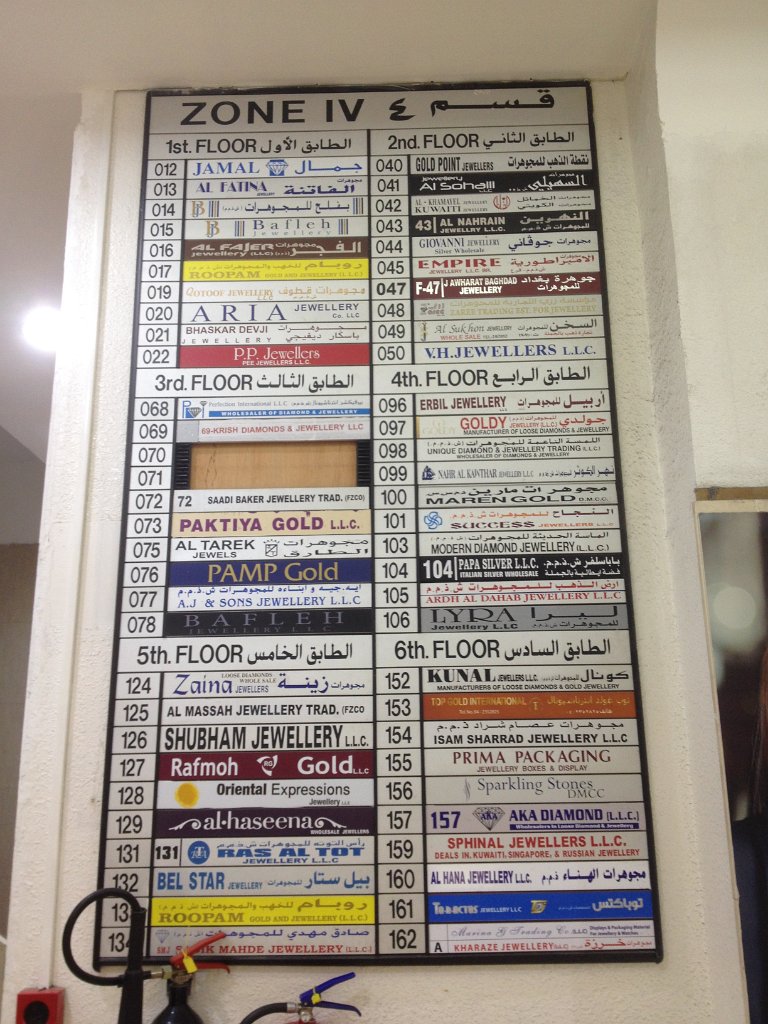 ZONE IV قسم ٤
1st. FLOOR الطابق الأول
012 JAMAL جمال
013 AL FATINA JEWELLERY الفاتنة مجوهرات
014 بافلح للمجوهرات
015 Bafleh Jewellery
016 AL FAJER jewellery (LLC) مجوهرات الفجر
017 روپام للذهب والمجوهرات (ش.ذ.م.م)
ROOPAM GOLD AND JEWELLERY (L.L.C.)
019 QOTOOF JEWELLERY LLC مجوهرات قطوف
020 ARIA JEWELLERY Co. LLC
021 BHASKAR DEVJI JEWELLERY مجوهرات باسكار ديفيجي
022 P.P. Jewellers
PEE JEWELLERS L.L.C.
2nd. FLOOR الطابق الثاني
040 GOLD POINT JEWELLERS نقطة الذهب للمجوهرات
041 jewellery Al Sohaili مجوهرات السهيلي
042 AL-KHAMAYEL KUWAITI JEWELLERY مجوهرات الخمائل الكويتي
043 43 AL NAHRAIN JEWELLERY L.L.C. النهرين للمجوهرات
044 GIOVANNI JEWELLERY Silver Wholesale مجوهرات جوفاني
045 EMPIRE JEWELLERY LLC BR. مجوهرات الامبراطورية
047 F-47 JAWHARAT BAGHDAD JEWELLERY جوهرة بغداد للمجوهرات
048 ZAREE TRADING EST. FOR JEWELLERY
049 Al Sukhon JEWELLERY WHOLE SALE السخن للمجوهرات
050 V.H.JEWELLERS L.L.C.
3rd. FLOOR الطابق الثالث
068 Perfection International L.L.C
WHOLESALER OF DIAMOND & JEWELLERY
069 69-KRISH DIAMONDS & JEWELLERY LLC
070
071
072 72 SAADI BAKER JEWELLERY TRAD. (FZCO)
073 PAKTIYA GOLD L.L.C.
075 AL TAREK JEWELS مجوهرات الطارق
076 PAMP Gold
077 ايه.جيه و ابناءه للمجوهرات ش.ذ.م.م
A.J & SONS JEWELLERY L.L.C
078 BAFLEH
JEWELLERY L.L.C
4th. FLOOR الطابق الرابع
096 ERBIL JEWELLERY أربيل للمجوهرات
097 GOLDY JEWELLERY (L.L.C) جولدي للمجوهرات
MANUFACTURER OF LOOSE DIAMONDS & JEWELLERY
098 اللمسة الناعمة للمجوهرات (ش.ذ.م.م)
UNIQUE DIAMOND & JEWELLERY TRADING (L.L.C)
WHOLESALER OF DIAMONDS & JEWELLERY
099 NAHR AL KAWTHAR JEWELLERY LLC نهر الكوثر للمجوهرات
100 مجوهرات مارين
MAREN GOLD D.M.C.C.
101 النجاح للمجوهرات ش.ذ.م.م
SUCCESS JEWELLERS LLC
103 الماسة الحديثة للمجوهرات (ش.ذ.م.م)
MODERN DIAMOND JEWELLERY (L.L.C.)
104 104 PAPA SILVER L.L.C. ITALIAN SILVER WHOLESALE باباسلفر ش.ذ.م.م. فضة ايطالية بالجملة
105 ارض الذهب للمجوهرات ش.ذ.م.م
ARDH AL DAHAB JEWELLERY L.L.C
106 LYRA Jewellery L.L.C ليرا للمجوهرات ش.ذ.م.م
5th. FLOOR الطابق الخامس
124 Zaina LOOSE DIAMONDS WHOLE SALE JEWELLERS زينة مجوهرات
125 AL MASSAH JEWELLERY TRAD. (FZCO
126 SHUBHAM JEWELLERY L.L.C.
127 Rafmoh RG Gold LLC
128 Oriental Expressions
Jewellery LLC
129 al-haseena
WHOLESALE JEWELLERS
131 131 رأس التوته للمجوهرات ش.ذ.م.م
RAS AL TOT
JEWELLERY L.L.C
132 BEL STAR JEWELLERY بيل ستار للمجوهرات
روپام للذهب والمجوهرات (ش.ذ.م.م)
ROOPAM GOLD AND JEWELLERY (L.L.C.)
134 صادق مهدي للمجوهرات (ش.ذ.م.م)
SMJ MAHDE JEWELLERY (L.L.C.)
6th. FLOOR الطابق السادس
152 KUNAL JEWELLERS L.L.C. كونال للمجوهرات
MANUFACTURERS OF LOOSE DIAMONDS & GOLD JEWELLERY
153 TOP GOLD INTERNATIONAL توب غولد انترناشيونال
154 مجوهرات عصام شراد ذ.م.م
ISAM SHARRAD JEWELLERY L.L.C
155 PRIMA PACKAGING
JEWELLERY BOXES & DISPLAY
156 Sparkling Stones
DMCC
157 157 AKA AKA DIAMOND (L.L.C.)
Wholesalers in Loose Diamond & Jewellery
159 SPHINAL JEWELLERS L.L.C.
DEALS IN. KUWAITI, SINGAPORE, & RUSSIAN JEWELLERY
160 AL HANA JEWELLERY LLC. مجوهرات الهناء ذ.م.م
161 JEWELLERY LLC توباكتس
162 Marina G Trading Co Displays & Packaging Material For Jewellery & Watches
A KHARAZE JEWELLERY مجوهرات خرزة